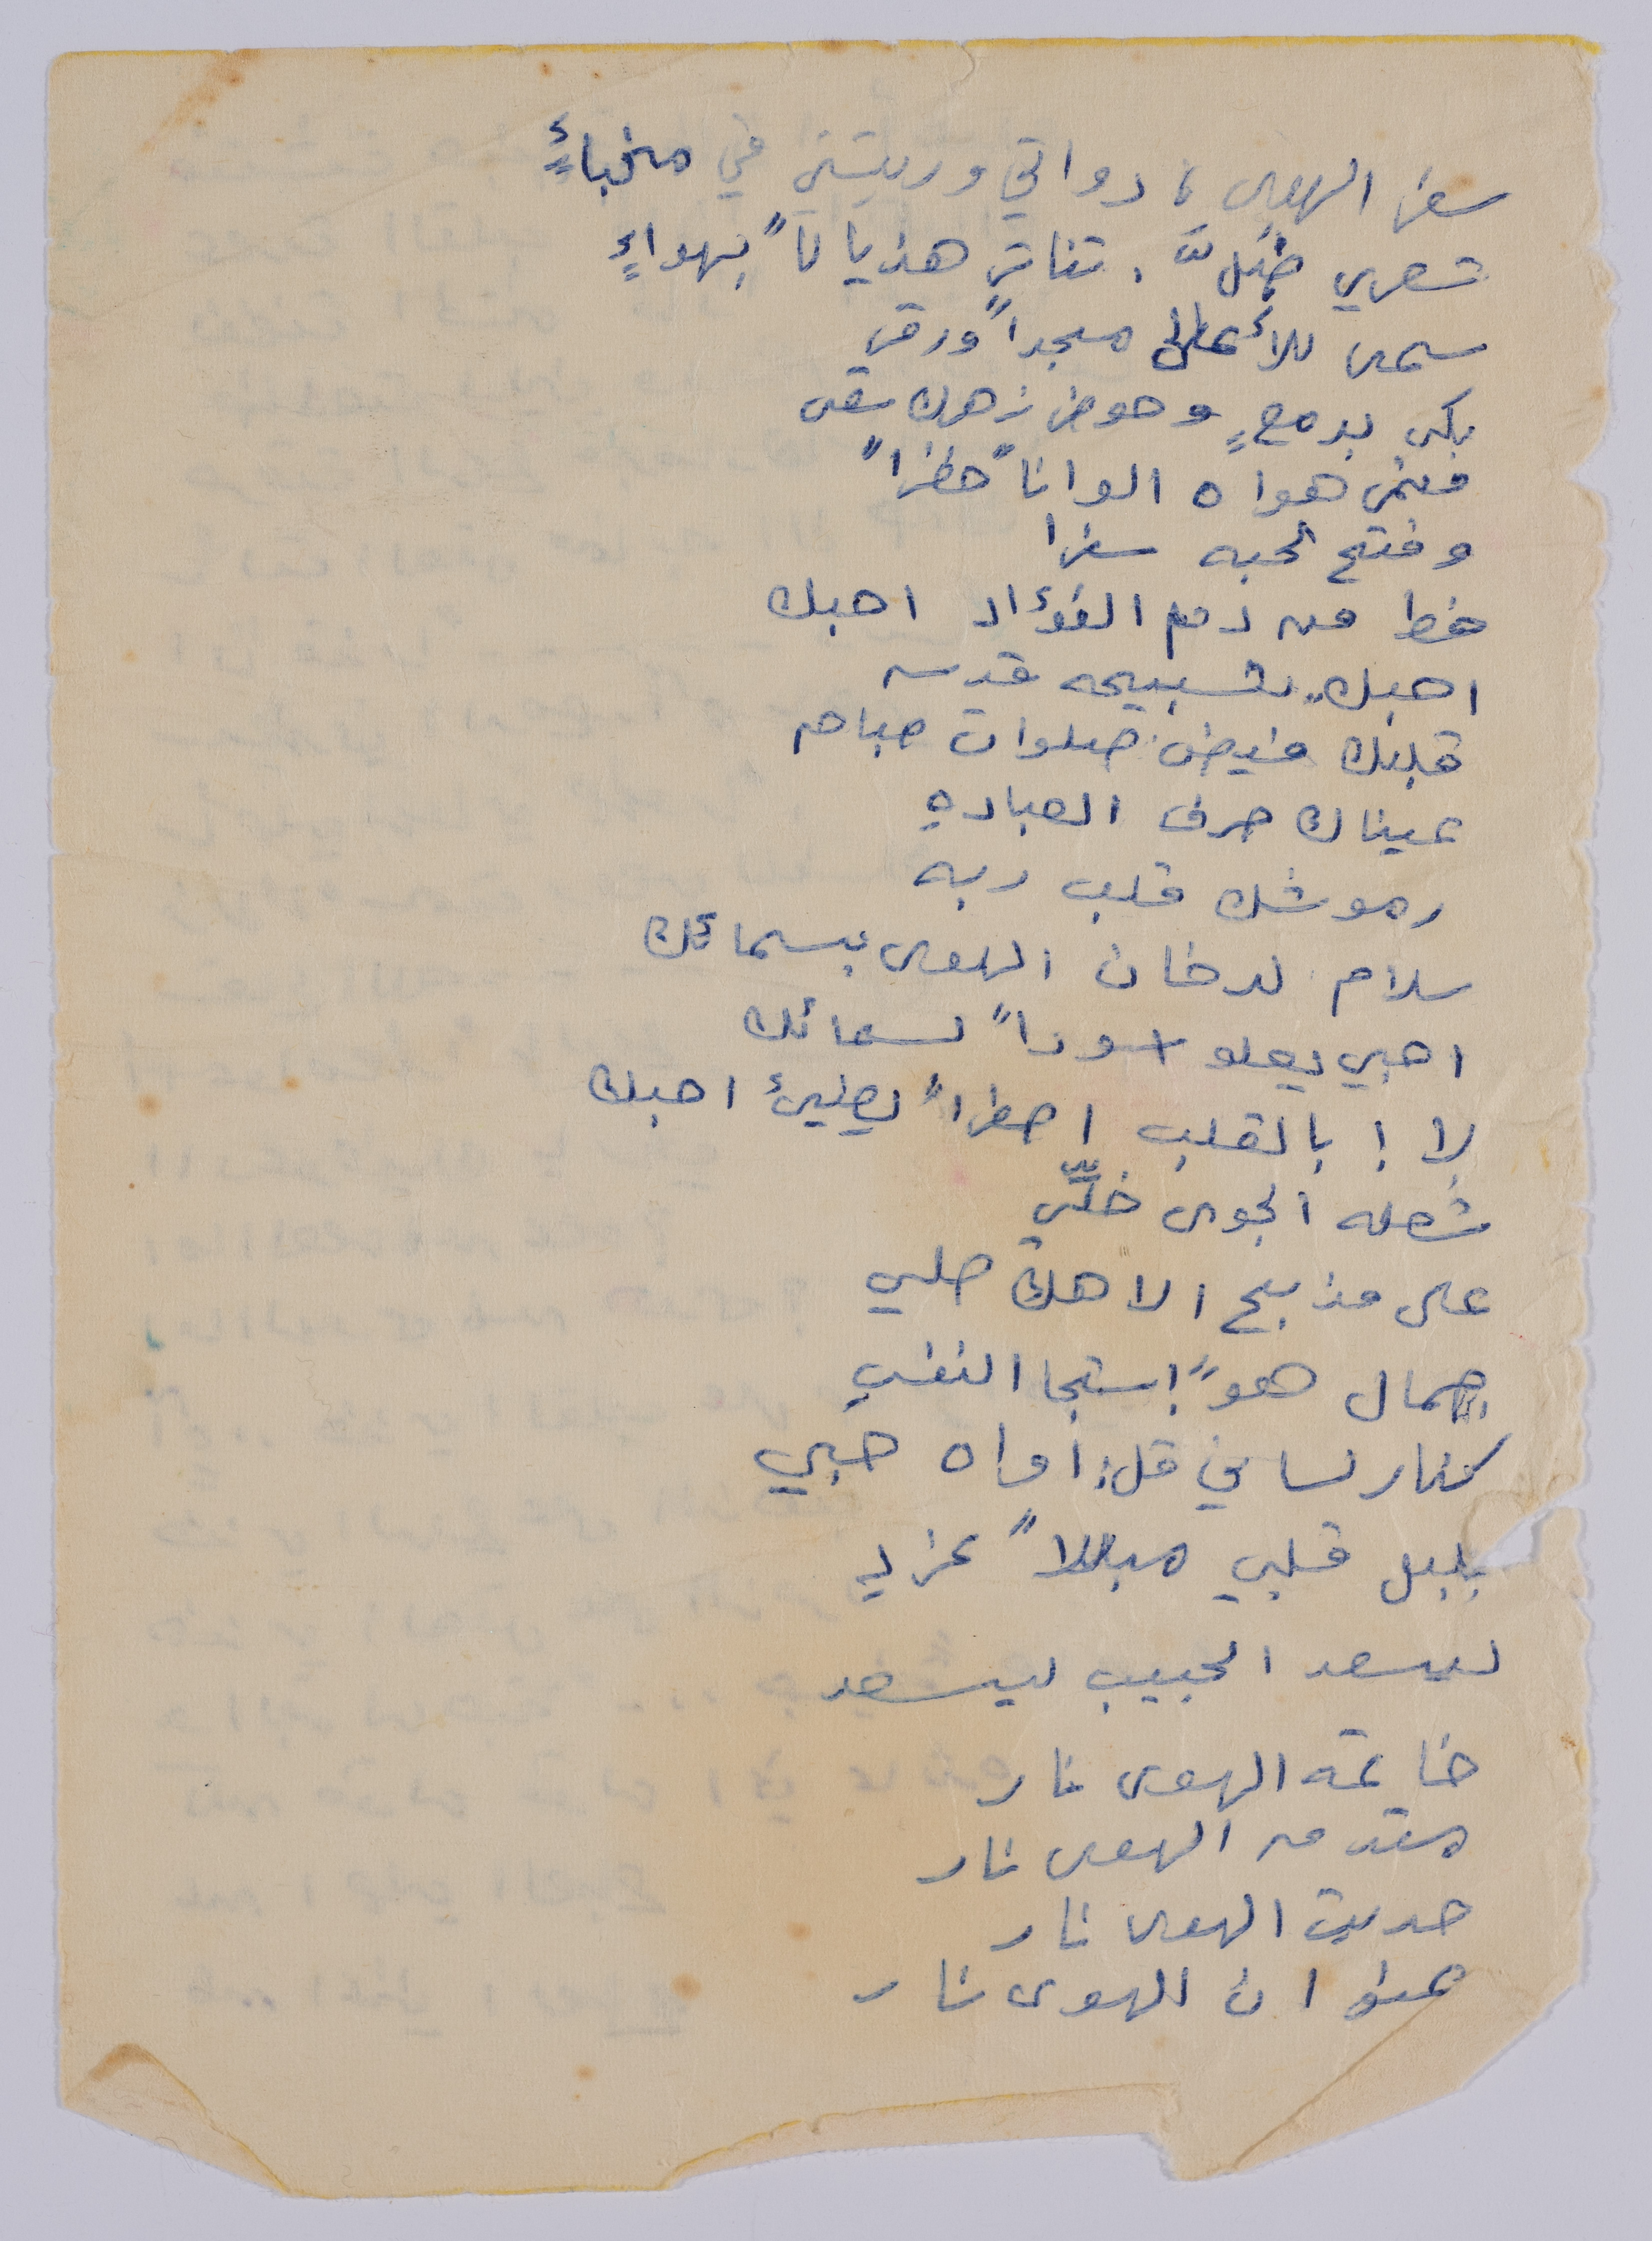 سفر الهوى، دواتي وريشتي في مخباءٍ
شعري ضلَّ. تناثر هذياناً بهواءٍ
سمى للأعالى مجداً ورقى
بكى بدمعٍ وحوض زهرك سقى
فنمى هواه الواناً خظرا
وفتح لحبه سفرا
خط من دمع الفؤاد احبك
احبك تسبيحه قدسه
قلبك فيض صلوات صباحه
عيناك حرف العباده
رموشك قلب ربه
سلام لدخان الهوى بسمائك
احبي يعلو اسوداً لسمائك
لا ! بالقلب اصفراً يضيئ احبك
شعله الجوى خلّي
على مذبح الاهك صلي
جمال هوً استجا النفس
كنار لساني قل: اواه حبي
بلبل قلبي مبللاً غرد
ليسعد الحبيب ليسعد
خاتمه الهوى نار
مقدمه الهوى نار
حديث الهوى نار
عنوان الهوى نار